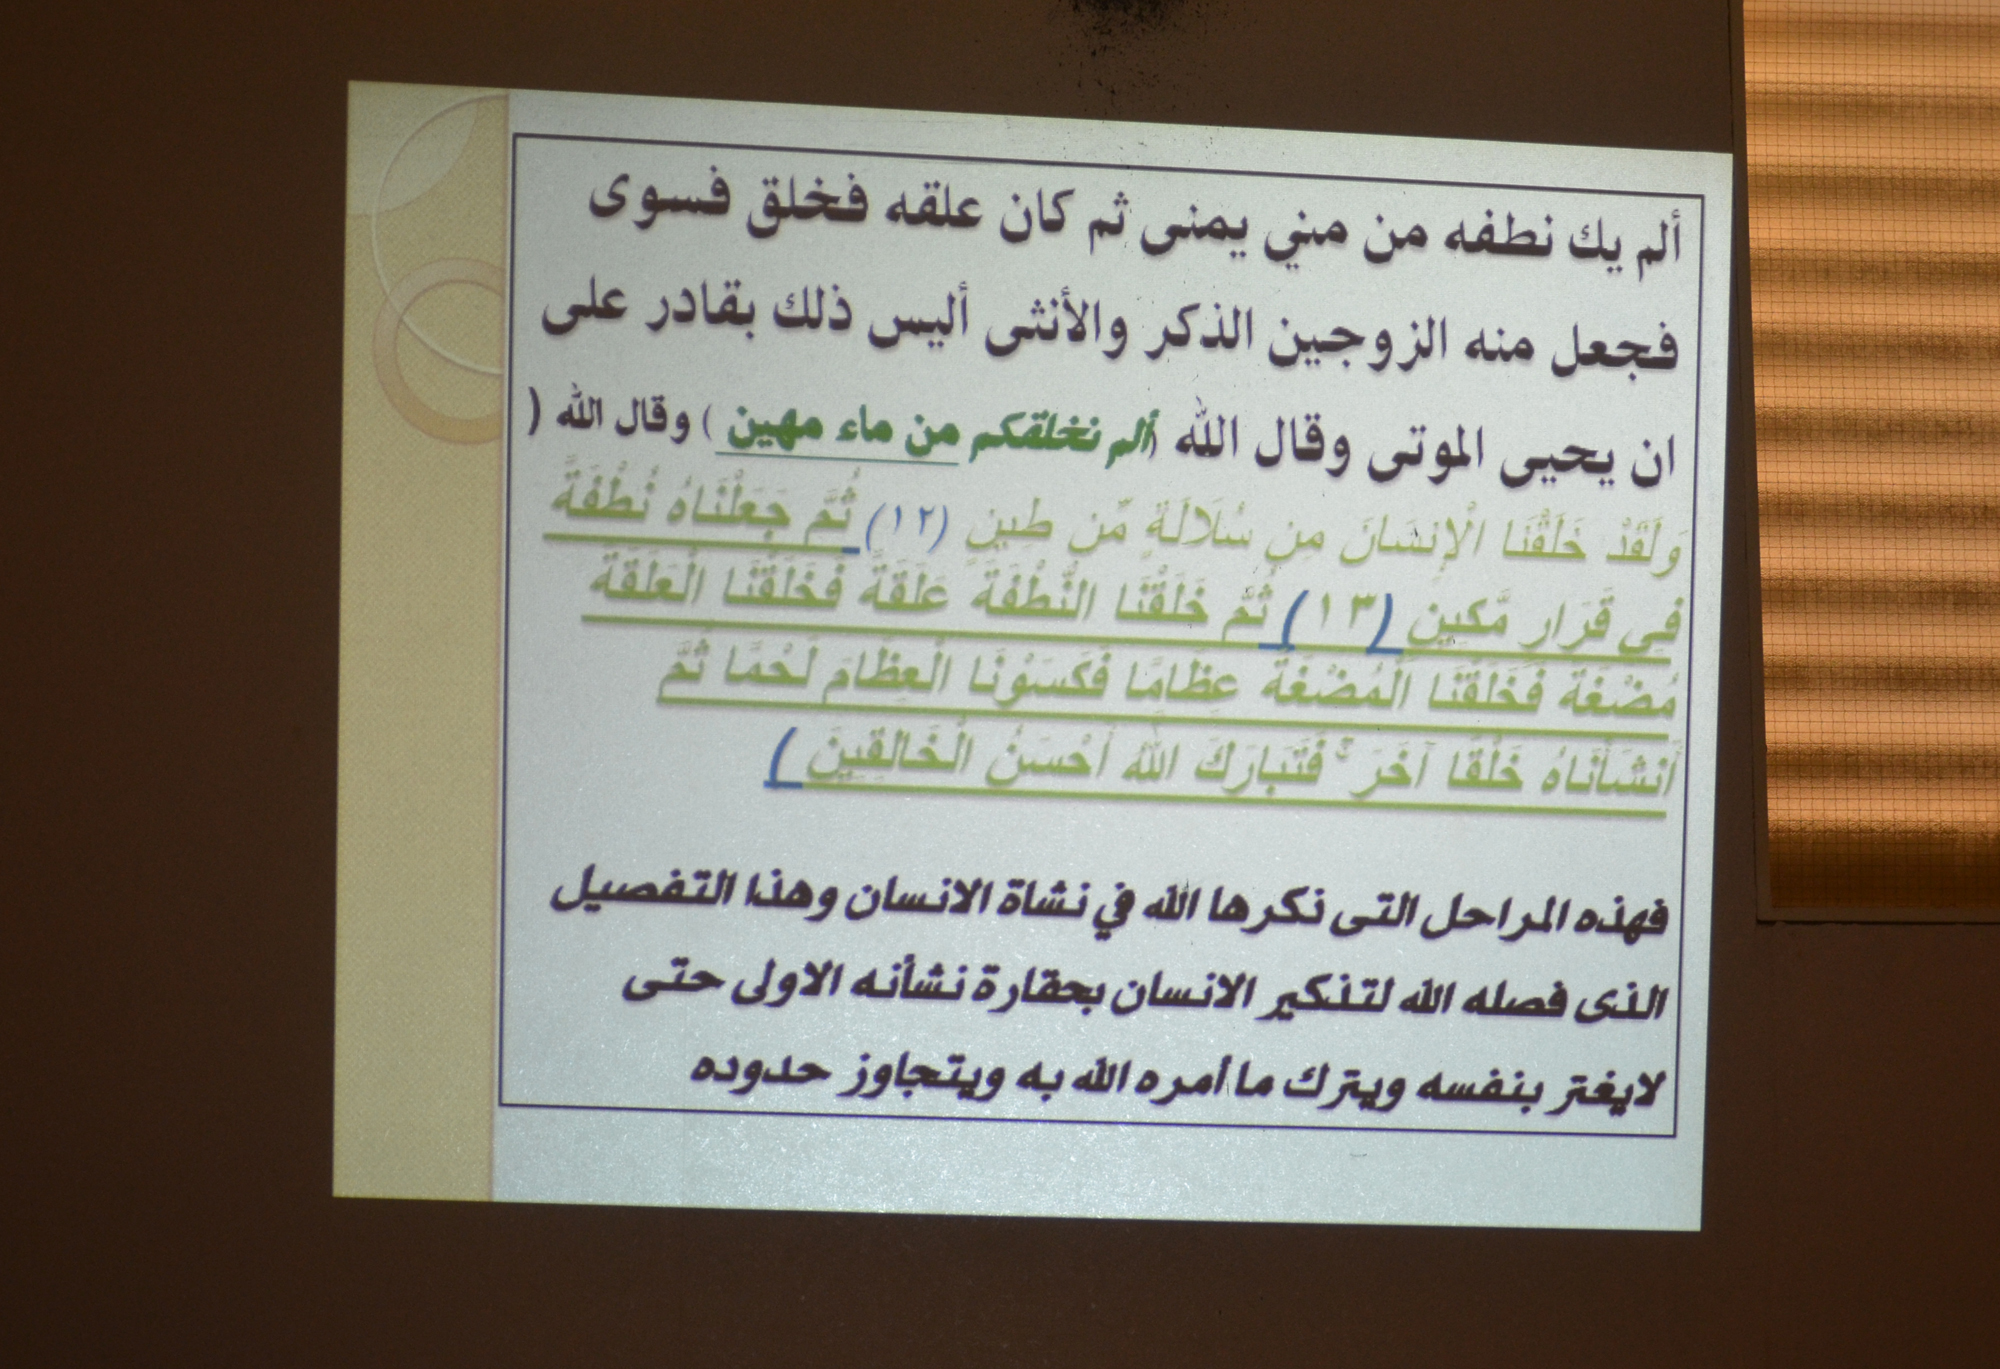 ألم يك نطفه من مني يمنى ثم كان علقه فخلق فسوى
فجعل منه الزوجين الذكر والأنثى أليس ذلك بقادر على
ان يحيى الموتى وقال الله (ألم نخلقكم من ماء مهين ) وقال الله (
وَلَقَدْ خَلَقْنَا الْإِنسَانَ مِن سُلَالَةٍ مِّن طِينٍ (١٢) ثُمَّ جَعَلْنَاهُ نُطْفَةً
فِي قَرَارٍ مَّكِينٍ (١٣) ثُمَّ خَلَقْنَا النُّطْفَةَ عَلَقَةً فَخَلَقْنَا الْعَلَقَةَ
مُضْغَةً فَخَلَقْنَا الْمُضْغَةَ عِظَامًا فَكَسَوْنَا الْعِظَامَ لَحْمًا ثُمَّ
أَنشَأْنَاهُ خَلْقًا آخَرَ ۚ فَتَبَارَكَ اللَّهُ أَحْسَنُ الْخَالِقِينَ )
فهذه المراحل التى ذكرها الله في نشاة الانسان وهذا التفصيل
الذى فصله الله لتذكير الانسان بحقارة نشأنه الاولى حتى
لايغتر بنفسه ويترك ما أمره الله به ويتجاوز حدوده